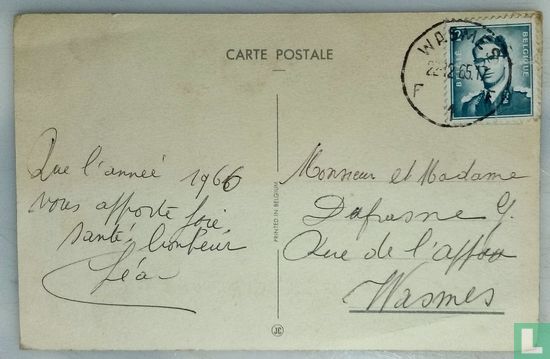 CARTE POSTALE
WASMES
22-12-65.17
F F
BELGIË BELGIQUE
Que l'année 1966
vous apporte joie
santé, bonheur
Léa
PRINTED IN BELGIUM
Monsieur et Madame
Dufrasne G.
Rue de l'
Wasmes
JC